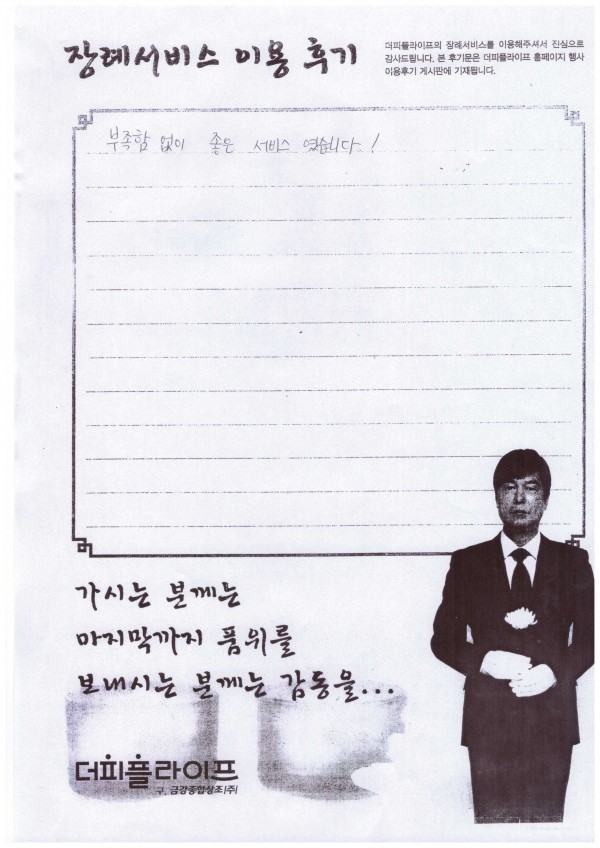 장례서비스 이용 후기
더피플라이프의 장례서비스를 이용해주셔서 진심으로
감사드립니다. 본 후기문은 더피플라이프 홈페이지 행사
이용후기 게시판에 기재됩니다.
부족함 없이 좋은 서비스 였습니다!
가시는 분께는
마지막까지 품위를
보내시는 분께는 감동을...
더피플라이프
구. 금강종합상조(주)